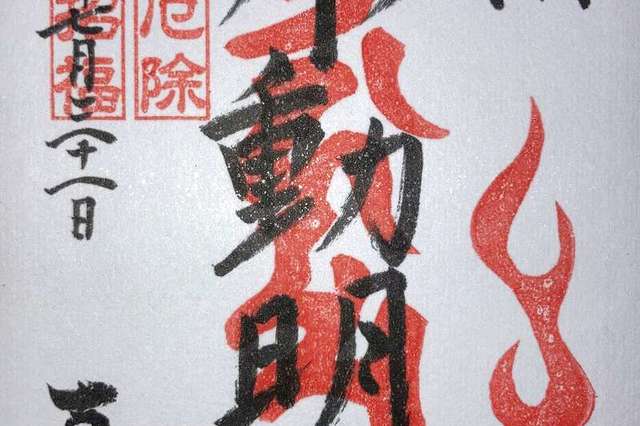 動明
厄除
招福
七月二十一日